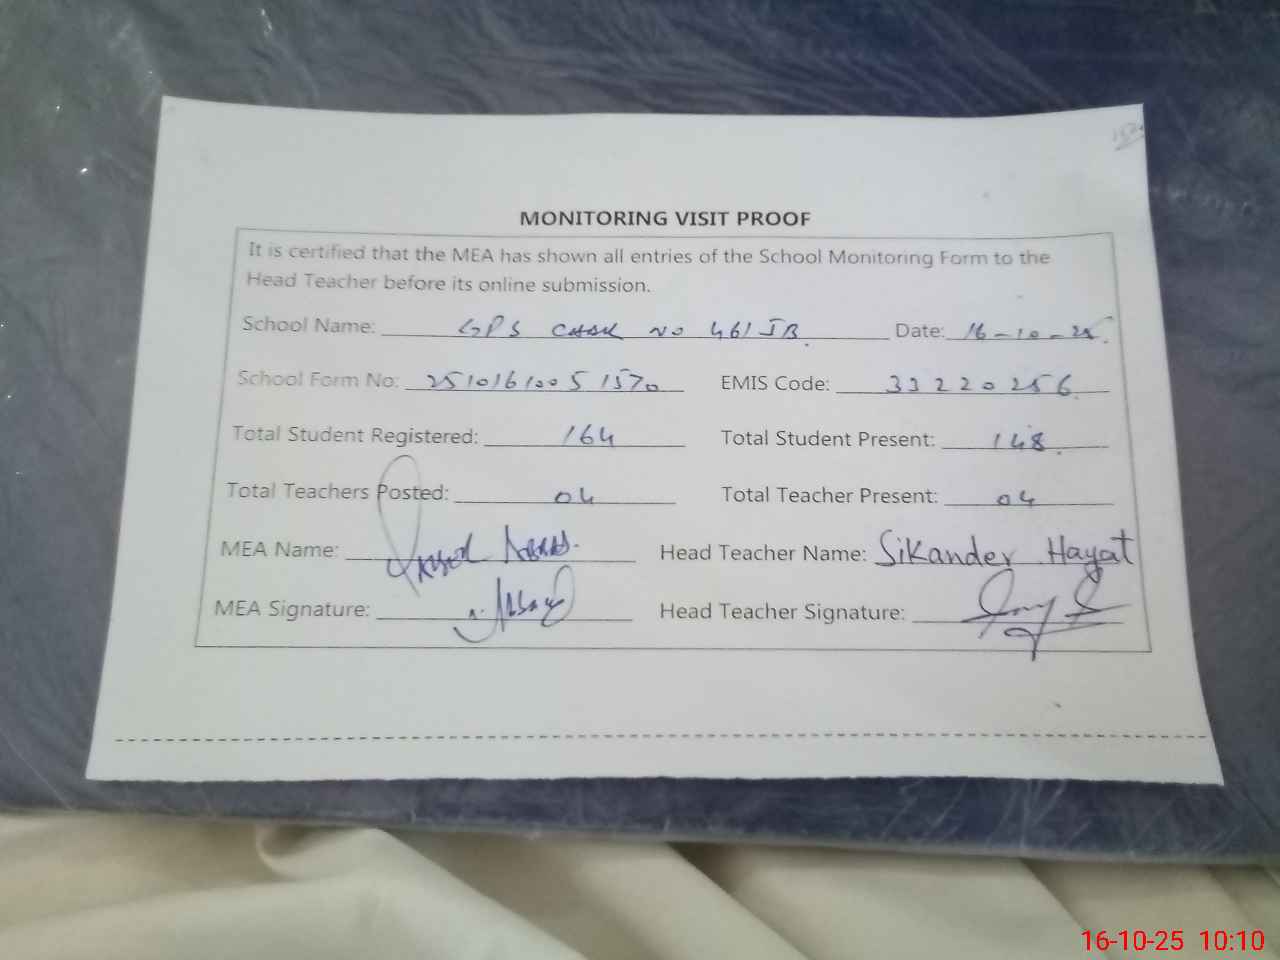 MONITORING VISIT PROOF
It is certified that the MEA has shown all entries of the School Monitoring Form to the
Head Teacher before its online submission.
School Name: GPS CHAK NO 461 JB. Date: 16-10-25.
School Form No: 25101610051570 EMIS Code: 33220256.
Total Student Registered: 164 Total Student Present: 148.
Total Teachers Posted: 04 Total Teacher Present: 04
MEA Name: Abbas. Head Teacher Name: Sikander Hayat
MEA Signature: Head Teacher Signature:
16-10-25 10:10